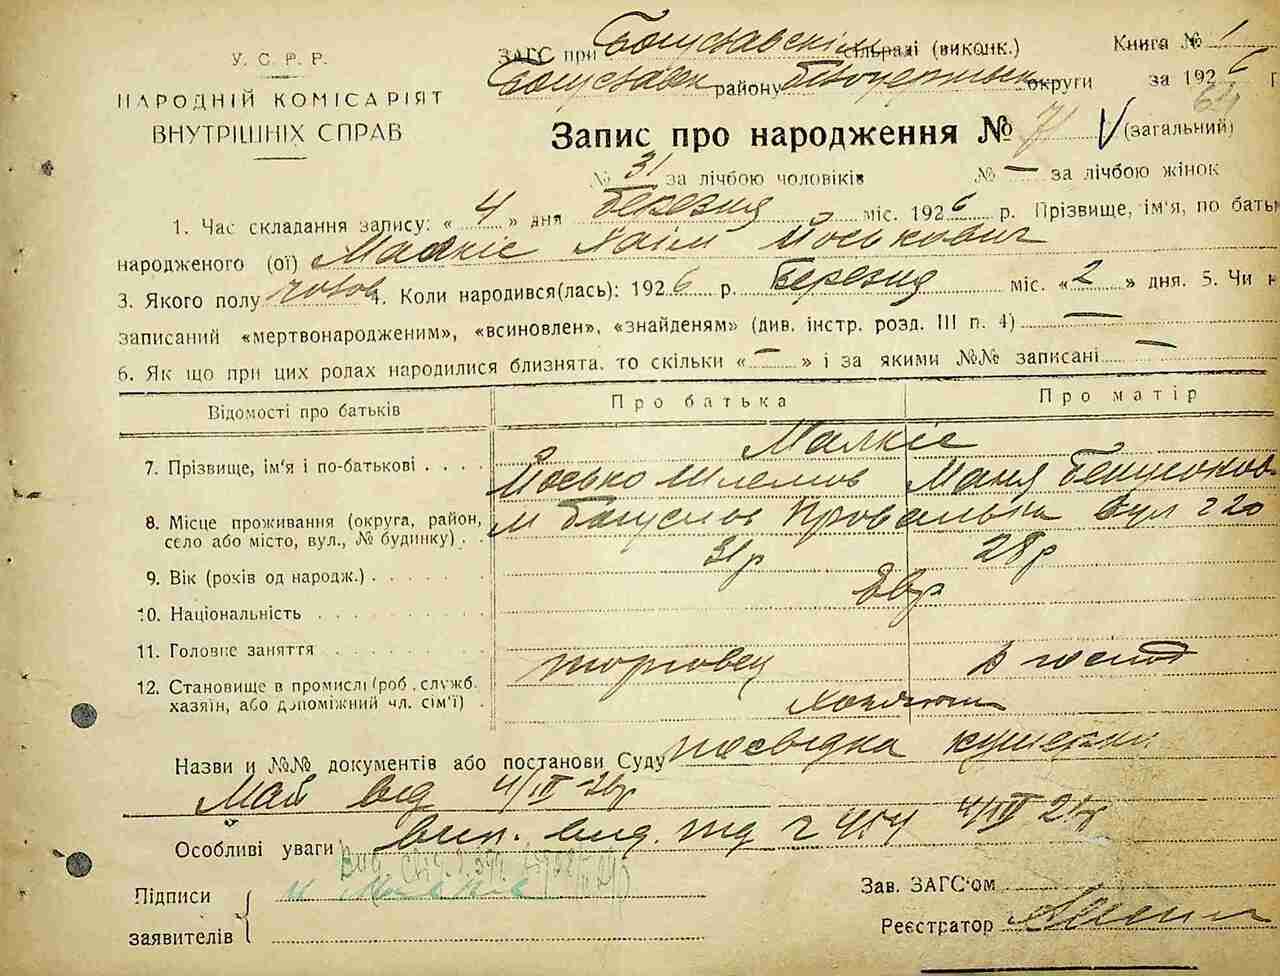 У. С. Р. Р.
НАРОДНІЙ КОМІСАРІЯТ
ВНУТРІШНІХ СПРАВ
ЗАГС при Богуславскім сільраді (виконк.) Книга № 1
Богуславск району Білоцерківськ округи за 1926 р
Запис про народження № 71 (загальний) 64
№ 31 за лічбою чоловіків № — за лічбою жінок
1. Час складання запису: «4» дня березня міс. 1926 р. Прізвище, ім'я, по батьк
народженого (ої) Малкіс Хаїм Йоськович
3. Якого полу чолов 4. Коли народився(лась): 1926 р. Березня міс. «2» дня. 5. Чи н
записаний «мертвонародженим», «всиновлен», «знайденям» (див. інстр. розд. III п. 4) —
6. Як що при цих родах народилися близнята, то скільки «—» і за якими №№ записані —
Відомості про батьків Про батька Про матір
7. Прізвище, ім'я і по-батькові Малкіс
Йосько Шлемов Маня
8. Місце проживання (округа, район, село або місто, вул., № будинку) м Богуслав вул 220
9. Вік (років од народж.) 31р 28р
10. Національність Євр
11. Головне заняття торговец в господ
12. Становище в промислі (роб., служб. хазяїн, або допоміжний чл. сім'ї)
Назви и №№ документів або постанови Суду посвідка
від
Особливі уваги вид.
Підписи
заявителів
Зав. ЗАГС'ом
Реєстратор